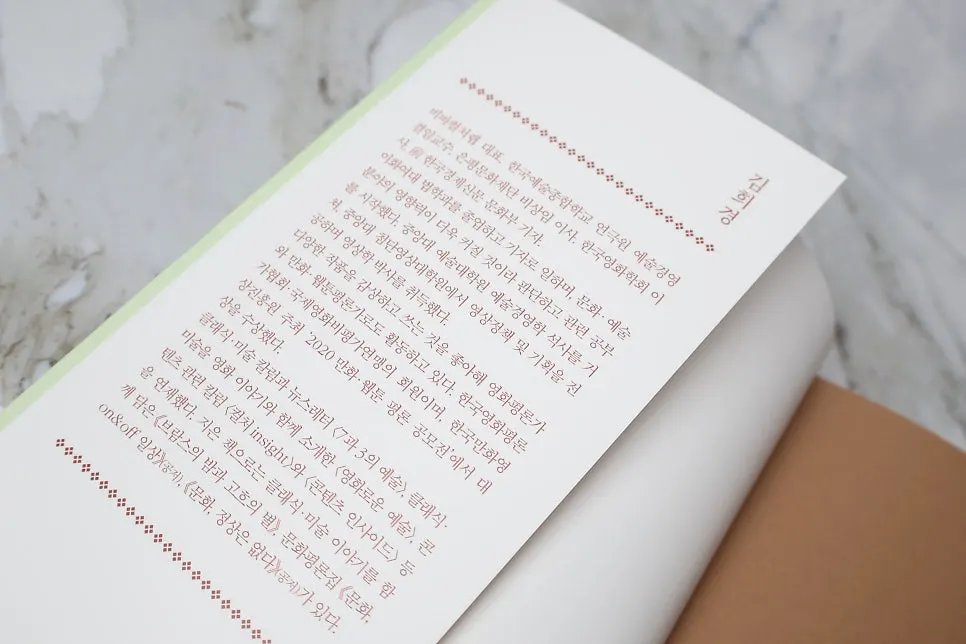 김희경
대표. 한국예술종합학교 예술경영
겸임교수, 은평문화재단 비상임 이사, 한국영화학회 이
사, 前 한국경제신문 문화부 기자.
이화여대 법학과를 졸업하고 기자로 일하며, 문화·예술
분야의 영향력이 더욱 커질 것이라 판단하고 관련 공부
를 시작했다. 중앙대 예술대학원 예술경영학 석사를 거
쳐, 중앙대 첨단영상대학원에서 영상정책 및 기획을 전
공하며 영상학 박사를 취득했다.
다양한 작품을 감상하고 쓰는 것을 좋아해 영화평론가
와 만화·웹툰평론가로도 활동하고 있다. 한국영화평론
가협회·국제영화비평가연맹의 회원이며, 한국만화영
상진흥원 주최 '2020 만화·웹툰 평론 공모전'에서 대
상을 수상했다.
클래식·미술 칼럼과 뉴스레터 〈7과 3의 예술〉, 클래식·
미술을 영화 이야기와 함께 소개한 〈영화로운 예술〉, 콘
텐츠 관련 칼럼 〈컬처 insight〉와 〈콘텐츠 인사이드〉 등
을 연재했다. 지은 책으로는 클래식·미술 이야기를 함
께 담은 《브람스의 밤과 고흐의 별》, 문화평론집 《문화,
on&off 일상》(공저), 《문화, 정상은 없다》(공저)가 있다.